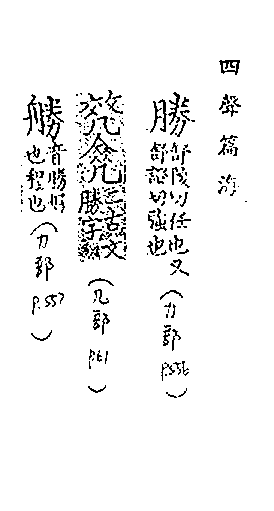 四聲篇海
勝 舒陵切任也又
舒證切強也(力部 P.556)
二古文
勝字(几部 P.61)
音勝
也(力部 P.557)